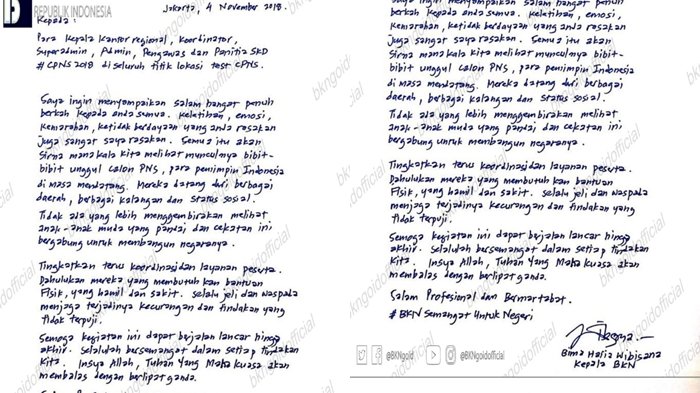 REPUBLIK INDONESIA
Jakarta, 4 November 2018.
Kepada :
Para Kepala Kantor regional, Koordinator,
Superadmin, Admin, Pengawas dan Panitia SKD
# CPNS 2018 di seluruh titik lokasi test CPNS.
Saya ingin menyampaikan salam hangat penuh
berkah kepada anda semua. Keletihan, emosi,
kemarahan, ketidak berdayaan yang anda rasakan
juga sangat saya rasakan. Semua itu akan
sirna manakala kita melihat munculnya bibit-
bibit unggul calon PNS, para pemimpin Indonesia
di masa mendatang. Mereka datang dari berbagai
daerah, berbagai kalangan dan status sosial.
Tidak ada yang lebih menggembirakan melihat
anak-anak muda yang pandai dan cekatan ini
bergabung untuk membangun negaranya.
Tingkatkan terus koordinasi dan layanan peserta.
Dahulukan mereka yang membutuhkan bantuan
Fisik, yang hamil dan sakit. Selalu jeli dan waspada
menjaga terjadinya kecurangan dan tindakan yang
tidak terpuji.
Semoga kegiatan ini dapat berjalan lancar hingga
akhir. Selalulah bersemangat dalam setiap tindakan
kita. Insya Allah, Tuhan Yang Maha kuasa akan
membalas dengan berlipat ganda.
berkah kepada anda semua. Keletihan, emosi,
kemarahan, ketidak berdayaan yang anda rasakan
juga sangat saya rasakan. Semua itu akan
sirna manakala kita melihat munculnya bibit-
bibit unggul calon PNS, para pemimpin Indonesia
di masa mendatang. Mereka datang dari berbagai
daerah, berbagai kalangan dan status sosial.
Tidak ada yang lebih menggembirakan melihat
anak-anak muda yang pandai dan cekatan ini
bergabung untuk membangun negaranya.
Tingkatkan terus koordinasi dan layanan peserta.
Dahulukan mereka yang membutuhkan bantuan
Fisik, yang hamil dan sakit. Selalu jeli dan waspada
menjaga terjadinya kecurangan dan tindakan yang
tidak terpuji.
Semoga kegiatan ini dapat berjalan lancar hingga
akhir. Selalulah bersemangat dalam setiap tindakan
kita. Insya Allah, Tuhan Yang Maha kuasa akan
membalas dengan berlipat ganda.
Salam Profesional dan Bermartabat.
# BKN Semangat Untuk Negeri
Bima Haria Wibisana
Kepala BKN
@BKNgoid
BKNgoidofficial
bkngoidofficial